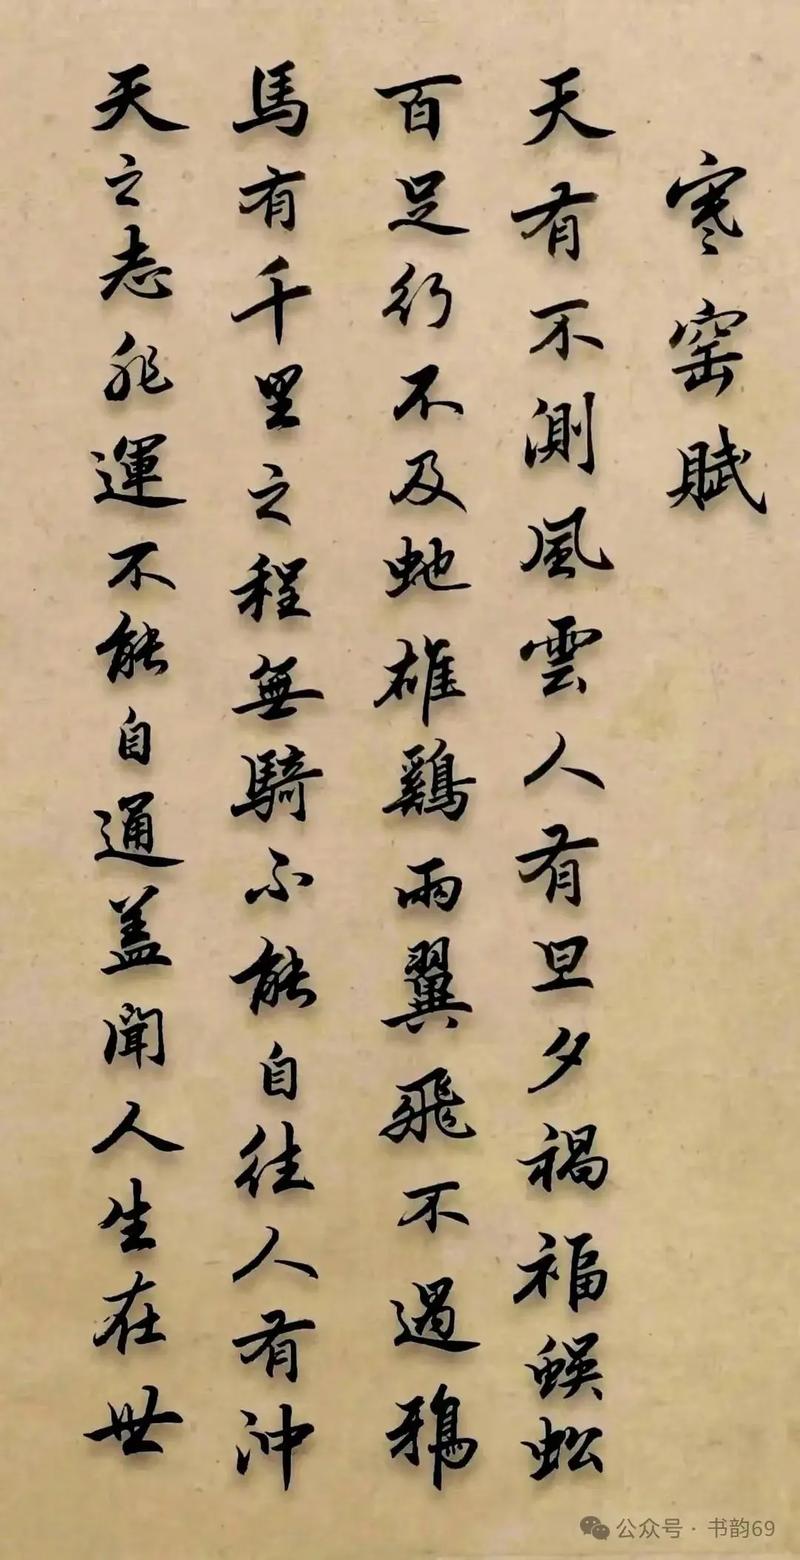 寒窑賦
天有不測風雲人有旦夕禍福蜈蚣
百足行不及虵雄鷄兩翼飛不過鴉
馬有千里之程無騎不能自往人有沖
天之志非運不能自通盖聞人生在世
公众号·书韵69